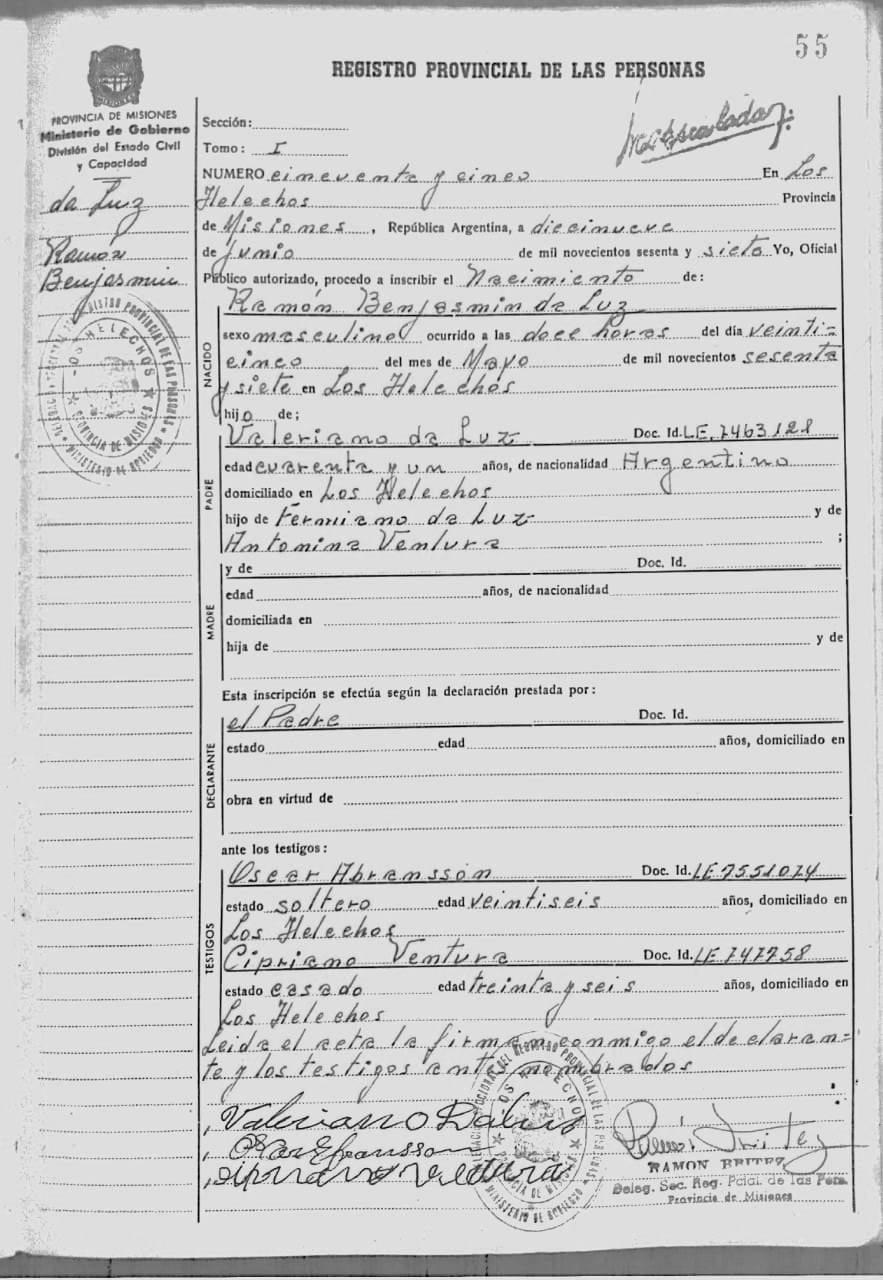 55
REGISTRO PROVINCIAL DE LAS PERSONAS
PROVINCIA DE MISIONES
Ministerio de Gobierno
División del Estado Civil
y Capacidad
da Luz
Ramón
Benjasmin
Sección:
Tomo: I
NUMERO cincuenta y cinco En Los
Helechos Provincia
de Misiones, República Argentina, a diecinueve
de junio de mil novecientos sesenta y siete Yo, Oficial
Público autorizado, procedo a inscribir el Nacimiento de:
NACIDO
Ramón Benjasmin da Luz
sexo masculino ocurrido a las doce horas del día veinti-
cinco del mes de Mayo de mil novecientos sesenta
y siete en Los Helechos
hijo de;
PADRE
Valeriano da Luz Doc. Id. LE.7463128
edad cuarenta y un años, de nacionalidad Argentino
domiciliado en Los Helechos
hijo de Fermiano da Luz y de
Antonina Ventura ;
MADRE
y de Doc. Id.
edad años, de nacionalidad
domiciliada en
hija de y de
Esta inscripción se efectúa según la declaración prestada por:
DECLARANTE
el Padre Doc. Id.
estado edad años, domiciliado en
obra en virtud de
ante los testigos:
TESTIGOS
Oscar Abransson Doc. Id. LE 7551074
estado soltero edad veintiseis años, domiciliado en
Los Helechos
Cipriano Ventura Doc. Id. LE 747758
estado casado edad treinta y seis años, domiciliado en
Los Helechos
Leida el acta la firman conmigo el declaran-
te y los testigos antes nombrados
Valeriano Daluz
RAMON BRITEZ
Deleg. Sec. Reg. Pcial. de las Pers.
Provincia de Misiones